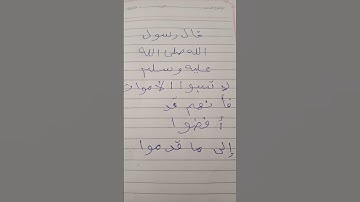 قال رسول
الله صلى الله
عليه وسلم
لا تسبوا الأموات
فأنهم قد
أفضوا
إلى ما قدموا